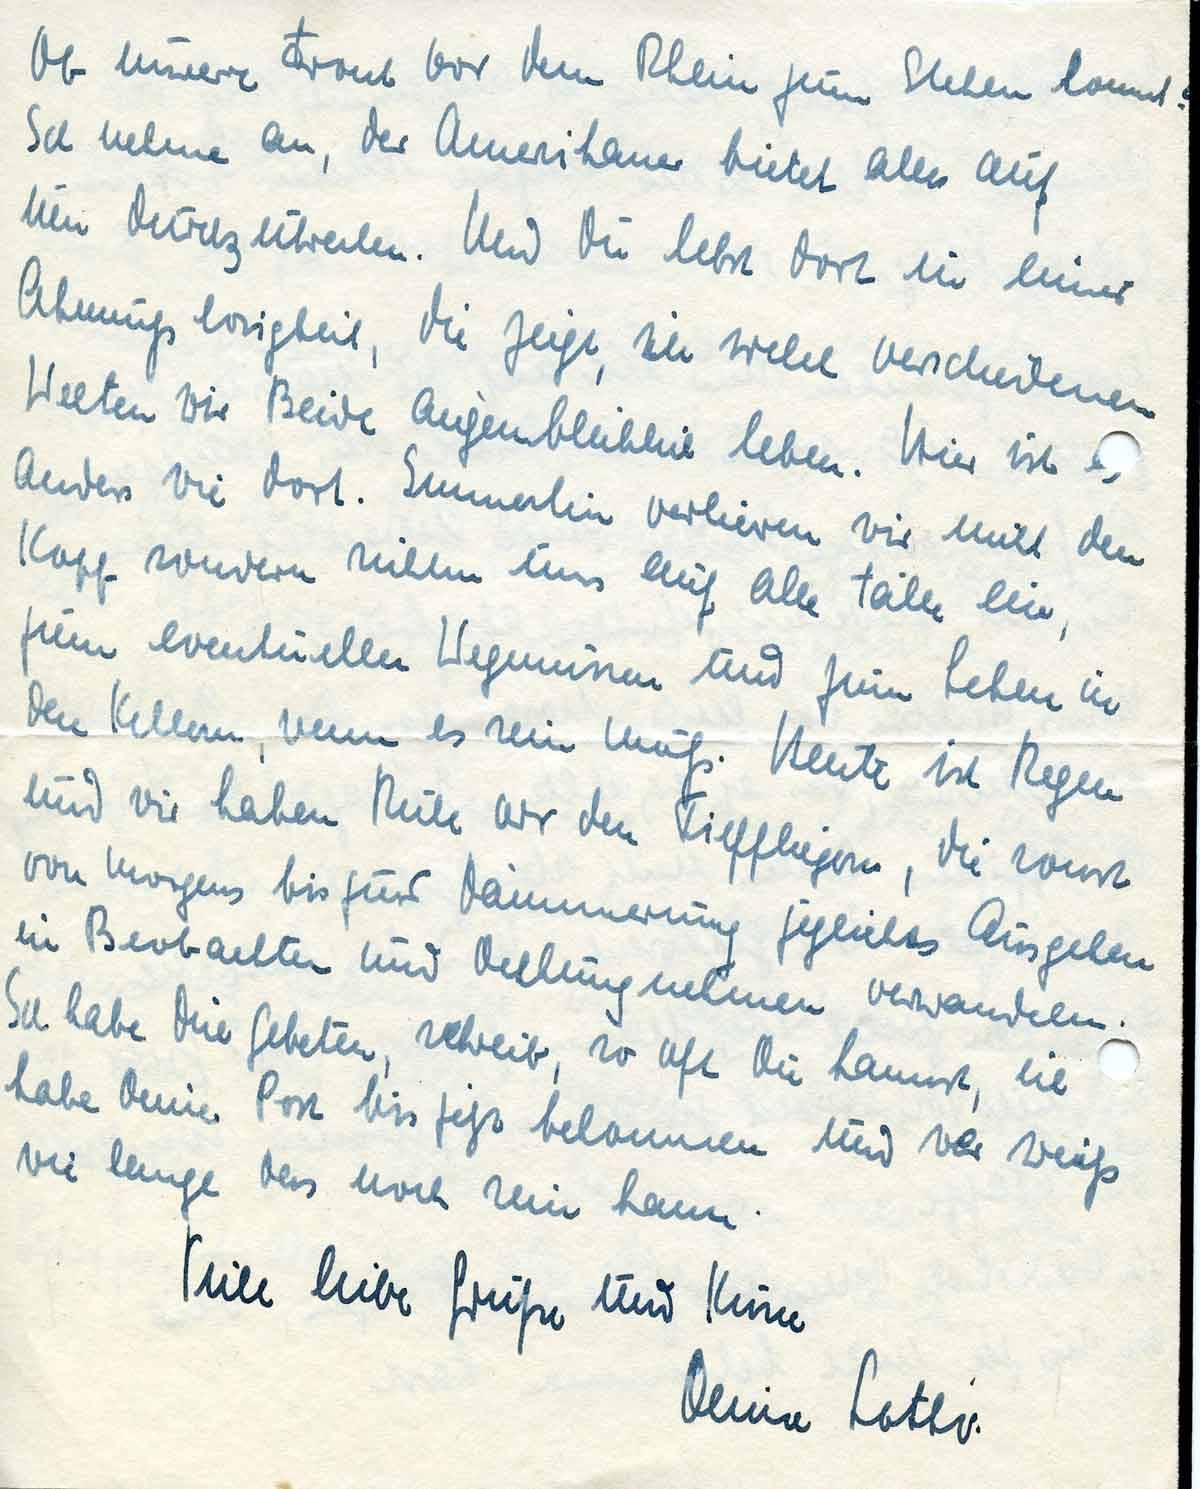 Ob unsere Front vor dem Rhein zum Stehen kommt?
Ich nehme an, der Amerikaner bietet alles auf
um durchzustossen. Und Du lebst dort in einer
Ahnungslosigkeit, die zeigt, in welch verschiedenen
Welten wir Beide augenblicklich leben. Hier ist es
anders wie dort. Immerhin verlieren wir nicht den
Kopf sondern richten uns auf alle Fälle ein,
zum eventuellen Wegmüssen und zum Leben in
den Kellern, wenn es sein muß. Heute ist Regen
und wir haben Ruhe vor den Tieffliegern, die sonst
von Morgens bis zur Dämmerung jegliches Ausgehen
in Beobachten und Deckungnehmen verwandeln.
Ich habe Dich gebeten, schreib, so oft Du kannst, ich
habe Deine Post bis jetzt bekommen und wer weiß
wie lange das noch sein kann.
Viele liebe Grüße und Küsse
Deine Lotti.